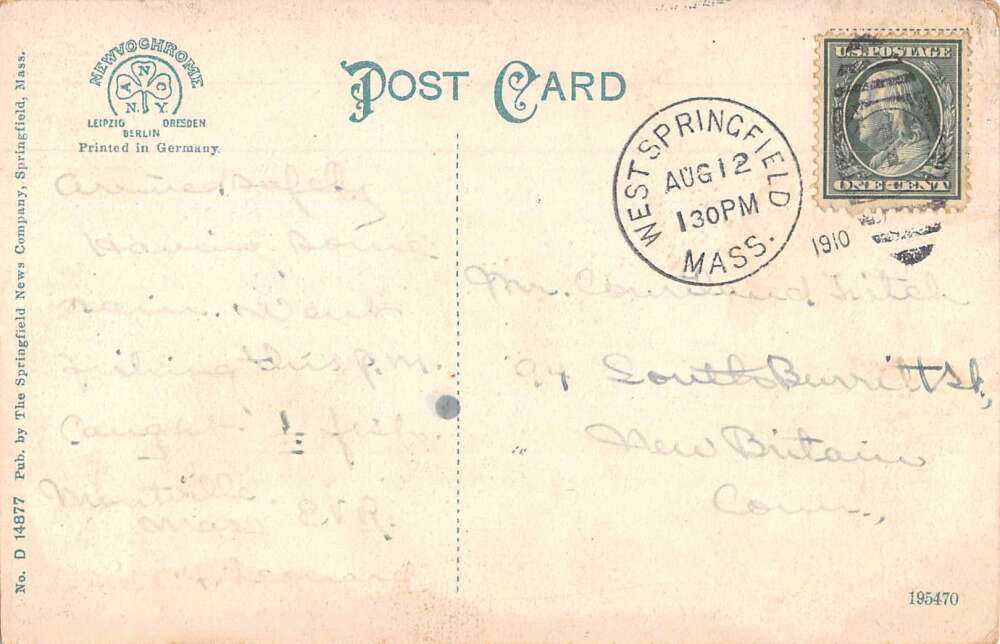 No. D 14877 Pub. by The Springfield News Company, Springfield, Mass.
NEWVOCHROME
A N C
N.Y.
LEIPZIG DRESDEN
BERLIN
Printed in Germany.
POST CARD
WEST SPRINGFIELD
AUG 12
1 30 PM
MASS.
1910
U.S. POSTAGE
ONE CENT
Arrive safely
Having some
rain. Went
fishing this P.M.
Caught 1 fish.
Montville
Mass E.V.R.
Mr. Fitch
94 South Burritt St,
New Britain
Conn.,
195470